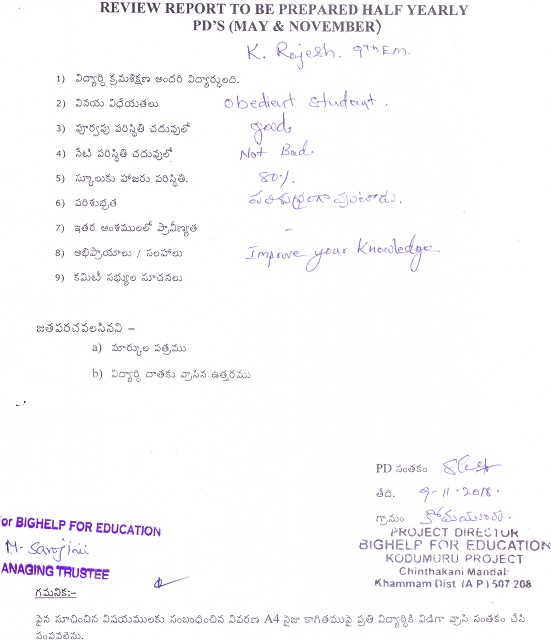 REVIEW REPORT TO BE PREPARED HALF YEARLY
PD'S (MAY & NOVEMBER)
K. Rajesh. 9th Em.
1) విద్యార్థి క్రమశిక్షణ అందరి విద్యార్థులది.
2) వినయ విధేయతలు obedient student.
3) పూర్వపు పరిస్థితి చదువులో good
4) నేటి పరిస్థితి చదువులో Not Bad
5) స్కూలుకు హాజరు పరిస్థితి. 80%.
6) పరిశుభ్రత పరిశుభ్రంగా వుంటాడు.
7) ఇతర అంశములలో ప్రావీణ్యత -
8) అభిప్రాయాలు / సలహాలు Improve your Knowledge
9) కమిటీ సభ్యుల సూచనలు
జతపరచవలసినవి –
a) మార్కుల పత్రము
b) విద్యార్థి దాతకు వ్రాసిన ఉత్తరము
PD సంతకం
తేది. 9-11-2018.
గ్రామం
or BIGHELP FOR EDUCATION
M. Sarojini
ANAGING TRUSTEE
PROJECT DIRECTOR
BIGHELP FOR EDUCATION
KODUMURU PROJECT
Chinthakani Mandal:
Khammam Dist (A P) 507 208
గమనిక:-
పైన సూచించిన విషయములకు సంబంధించిన వివరణ A4 సైజు కాగితముపై ప్రతి విద్యార్థికి విడిగా వ్రాసి సంతకం చేసి
పంపవలెను.